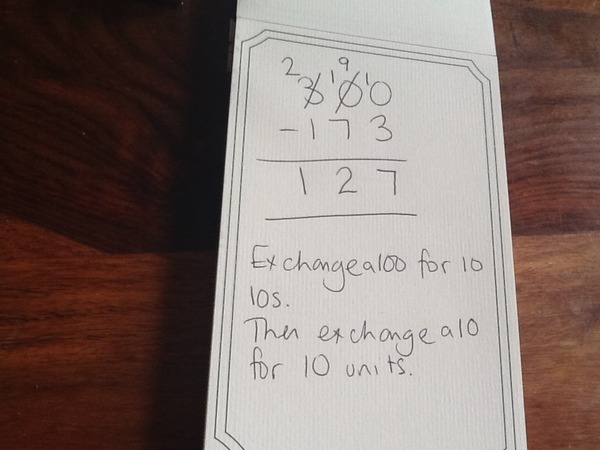 2 1 9 1
3 0 0
- 1 7 3
1 2 7
Exchange a 100 for 10
10s.
Then exchange a 10
for 10 units.